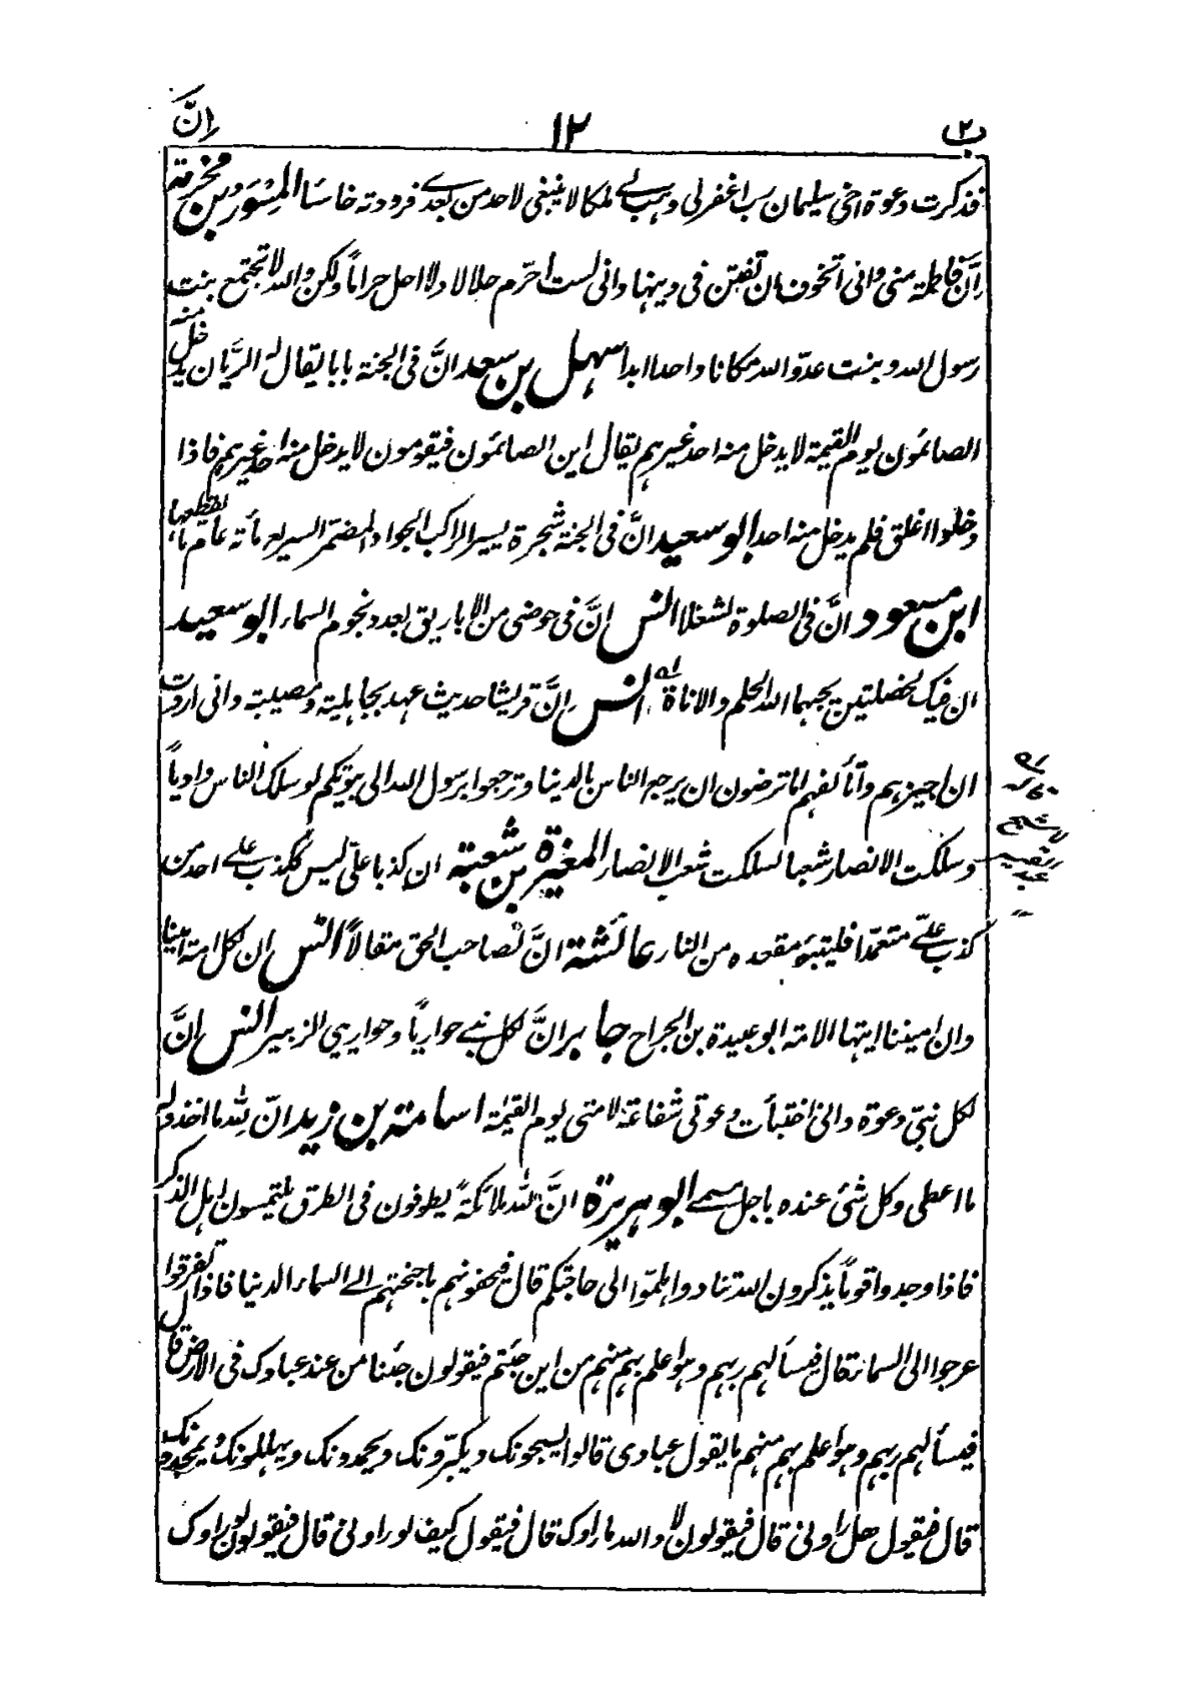 ب۲ ۱۲ اِنَّ
فذكرت دعوة اخى سليمان رب اغفرلى وهب لے ملكا لا ينبغى لاحد من بعدے فردوته خاسئا المِسْوَر بن مخرمة
اِنَّ فاطمة منى وانى اتخوف ان تفتن فى دينها وانى لست احرّم حلالا ولا احل حراماً ولكن والله لا تجتمع بنت
رسول الله وبنت عدوّ الله مكانا واحدا ابدا سهل بن سعد انَّ فى الجنة بابا يقال له الريَّان يدخل منه
الصائمون يوم القيمة لا يدخل منه احد غيرهم يقال اين الصائمون فيقومون لا يدخل منه احد غيرهم فاذا
دخلوا اغلق فلم يدخل منه احد ابو سعيد انَّ فى الجنة شجرة يسير الراكب الجواد المضمّر السريع مأته عام ما يقطعها
ابن مسعود انَّ فى الصلوة لشغلا انس اِنَّ فى حوضى من الاباريق بعدد نجوم السماء ابو سعيد
ان فيك لخصلتين يحبهما الله الحلم والاناة انس اِنَّ قريشا حديث عهد بجاهلية ومصيبته وانى اردت
ان اجيزهم وأتألفهم اما ترضون ان يرجع الناس بالدنيا وترجعوا برسول الله الى بيوتكم لو سلك الناس وادياً
وسلكت الانصار شعبا لسلكت شعب الانصار المغيرة بن شعبة ان كذبا علىّ ليس ككذب علے احد من
كذب علىّ متعمّدا فليتبوّء مقعده من النار عائشة انَّ لصاحب الحق مقالاً انس ان لكل امته امينا
وان اميننا ايتها الامة ابو عبيدة بن الجراح جابر انَّ لكل نبے حوارياً وحواريى الزبير انس انَّ
لكل نبىّ دعوة وانى اختبأت دعوتى شفاعة لامتى يوم القيمة اسامة بن زيد انّ لله ما اخذ وله
ما اعطى وكل شئ عنده باجل مسمے ابو هريرة انَّ لله ملائكةً يطوفون فى الطرق يلتمسون اهل الذكر
فاذا وجدوا قوماً يذكرون الله تنادوا هلمّوا الى حاجتكم قال فيحفونهم باجنحتهم الے السماء الدنيا فاذا تفرقوا
عرجوا الى السماء قال فيسألهم ربهم وهو اعلم بهم منهم من اين جئتم فيقولون جئنا من عند عبادك فى الارض قال
فيسألهم ربهم وهو اعلم بهم منهم ما يقول عبادى قالوا يسبحونك ويكبّرونك ويحمدونك ويهللونك ويمجّدونك
قال فيقول هل راونى قال فيقولون لا والله ما راوك قال فيقول كيف لو راونى قال فيقولون لو راوك